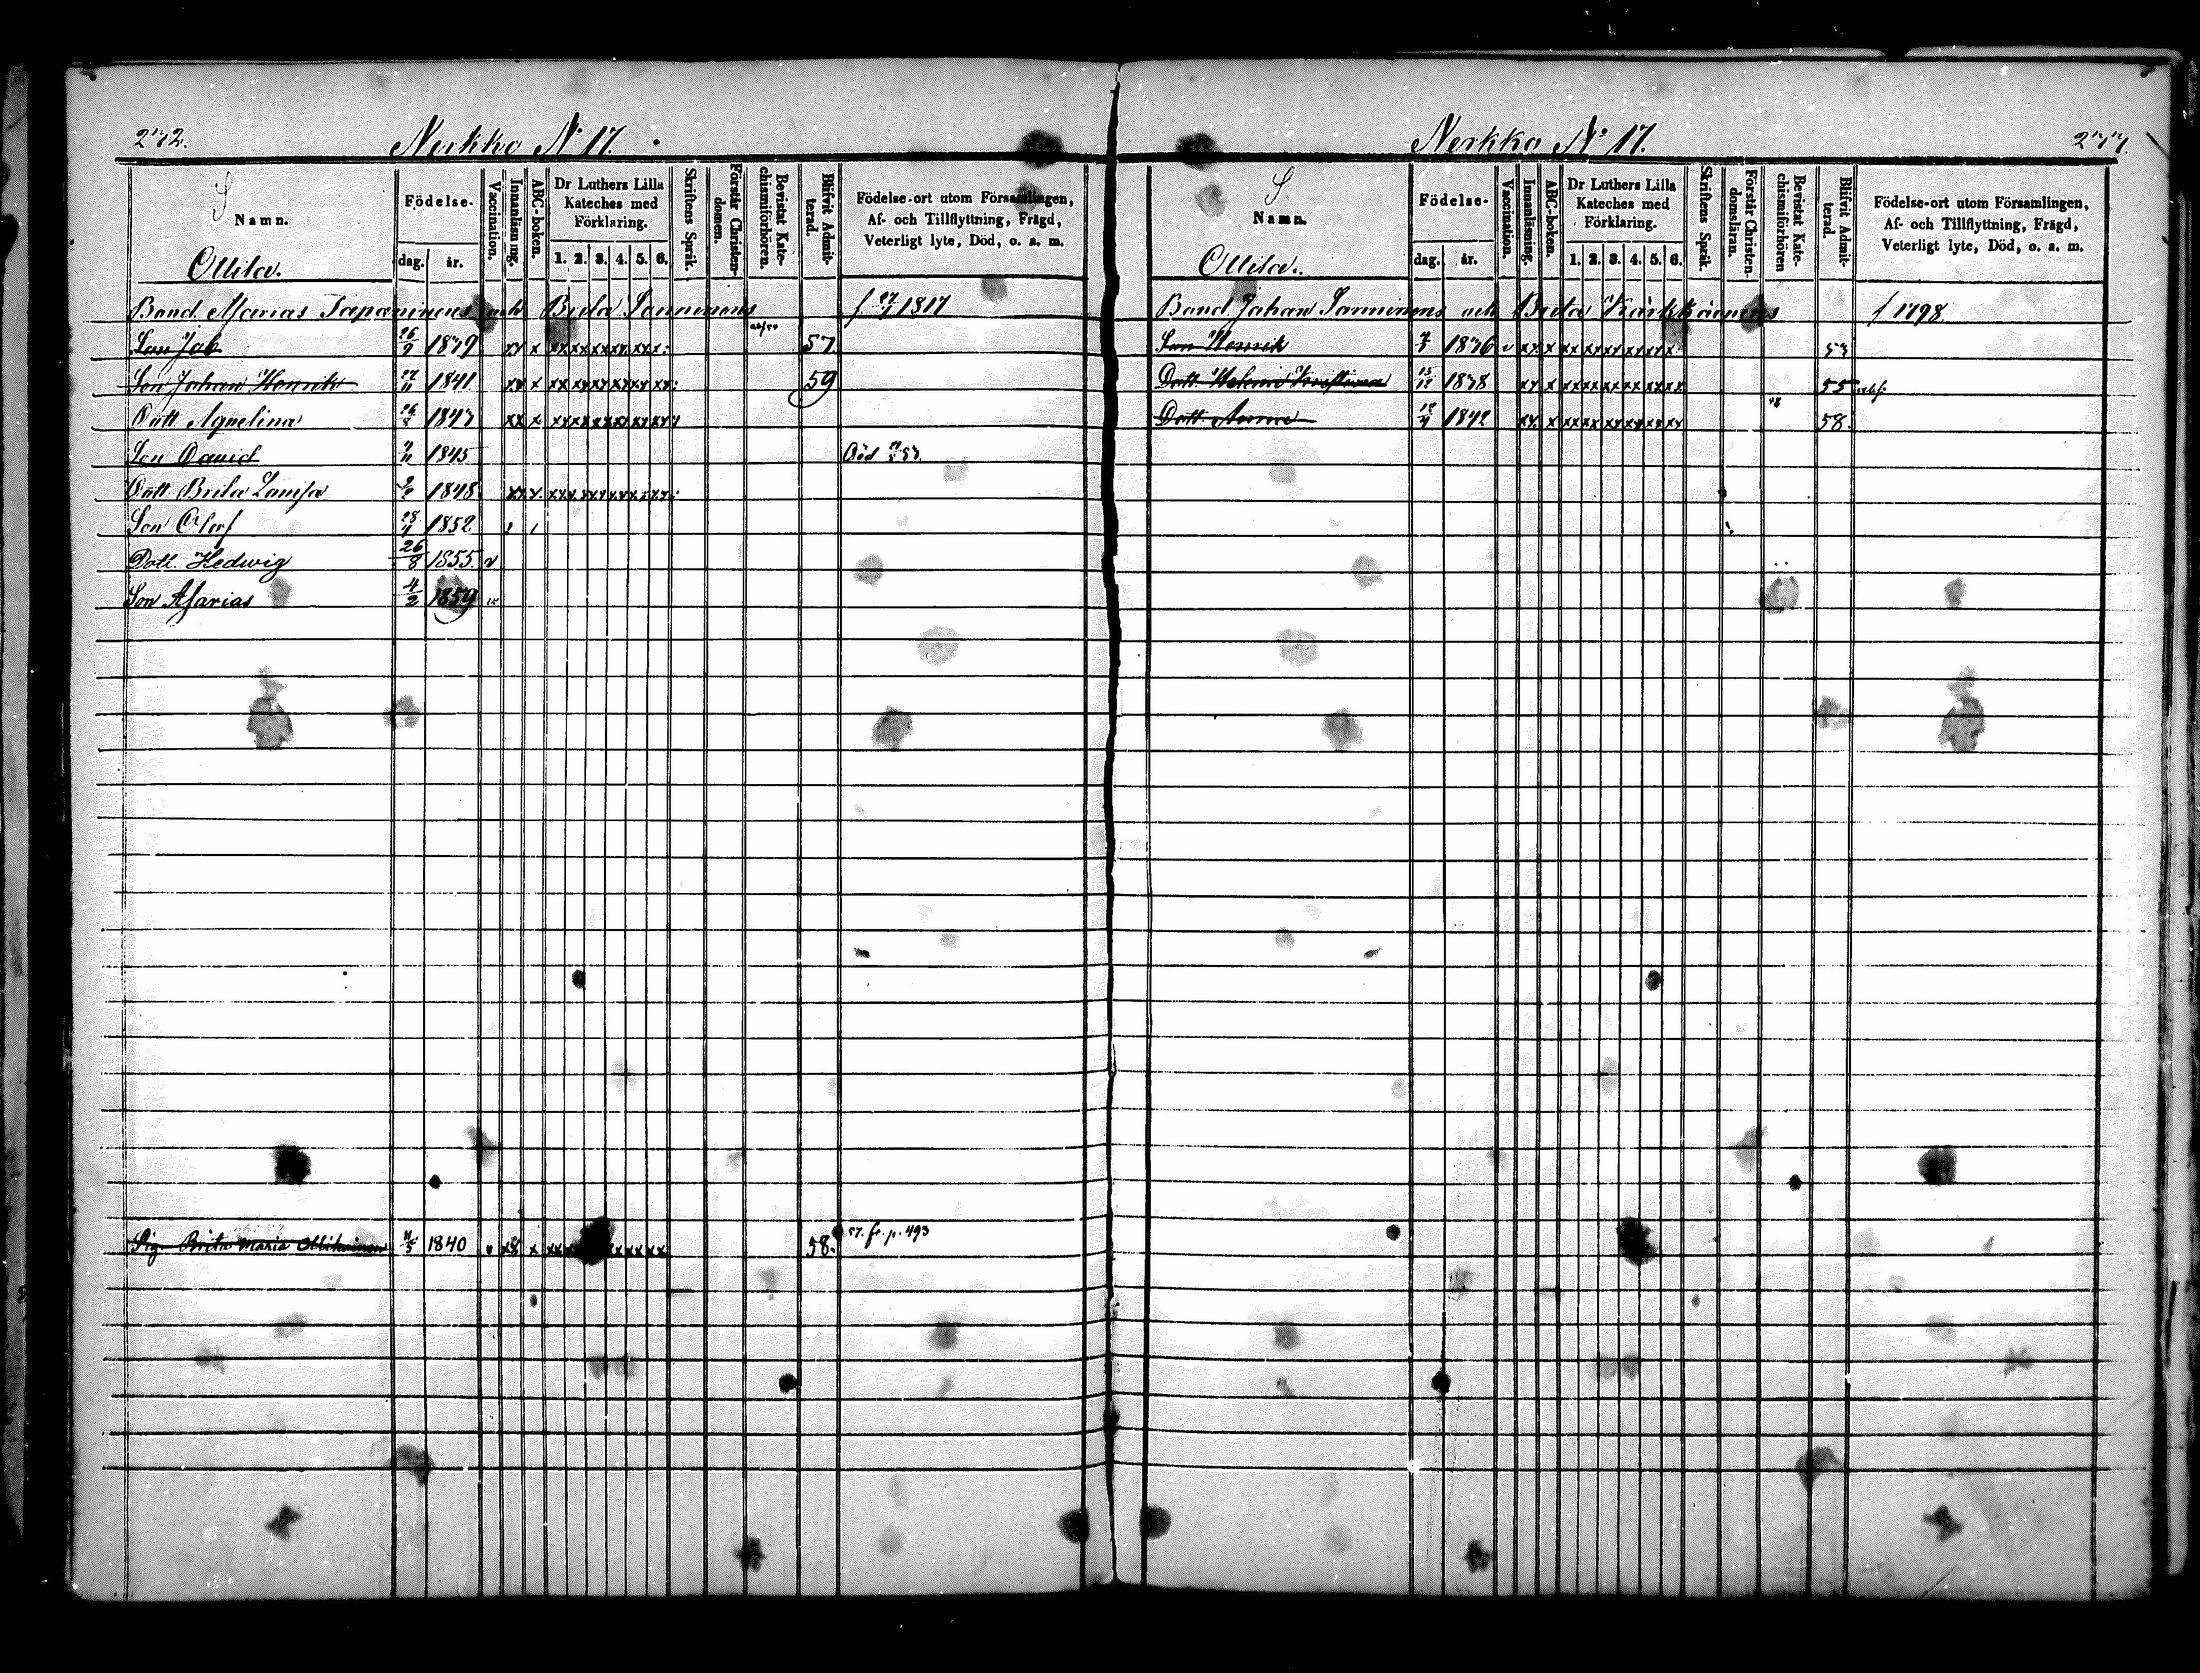 272. Nerkko No 17.
Namn.
Födelse-
dag. år.
Vaccination.
Innanläsning.
ABC-boken.
Dr Luthers Lilla
Kateches med
Förklaring.
1. 2. 3. 4. 5. 6.
Skriftens Språk.
Förstår Christen-
domen.
Bevistat Kate-
chismiförhören.
Blifvit Admit-
terad.
Födelse-ort utom Församlingen,
Af- och Tillflyttning, Frägd,
Veterligt lyte, Död, o. a. m.
Ollila.
Bond. Asarias Tapaninens och Brita Sanninens f. 1817
Son Job 26/9 1839 57.
Son Johan Henrik 1841 59
Dott Agnelina 1843
Son David 1845 Död
Dott. Brita Lovisa 1848
Son Olof 1852
Dott. Hedwig 26/8 1855 v
Son Asarias 4/2 1859
Pig. Brita Maria 1840 58. fr. p. 493
Nerkko No 17. 277.
Namn.
Födelse-
dag. år.
Vaccination.
Innanläsning.
ABC-boken.
Dr Luthers Lilla
Kateches med
Förklaring.
1. 2. 3. 4. 5. 6.
Skriftens Språk.
Förstår Christen-
domsläran.
Bevistat Kate-
chismiförhören
Blifvit Admit-
terad.
Födelse-ort utom Församlingen,
Af- och Tillflyttning, Frägd,
Veterligt lyte, Död, o. a. m.
Ollila.
Bond. Johan Sanninens och Brita Kärkkäinens f 1798
Son Henrik 1836 v 53
Dott. Helena Kristina 1838 55
Dott. Anna 1842 58.